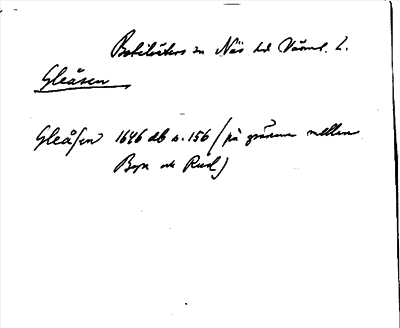 Botilsäters sn Näs hd Värml. L.
Gleåsen
Gleåsen 1646 db s. 156 (på gränsen mellan
Byn och Rud)